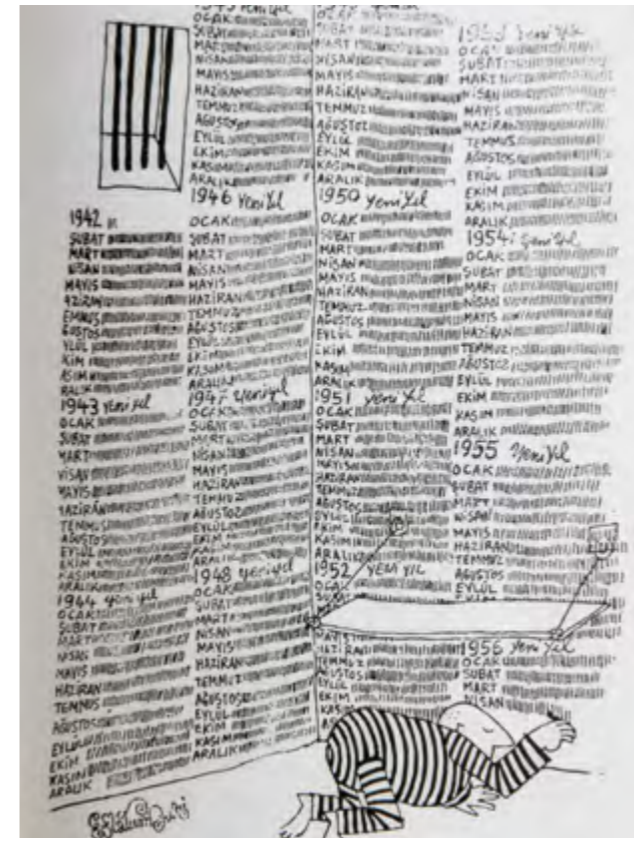 1942
ŞUBAT
MART
NİSAN
MAYIS
AZİRAN
EMMUS
ĞUSTOS
YLÜL
KİM
ASIM
RALIK
1943 Yeni Yıl
OCAK
ŞUBAT
MART
NİSAN
MAYIS
HAZİRAN
TEMMUS
AĞUSTOS
EYLÜL
EKİM
KASIM
ARALIK
1944 Yeni Yıl
OCAK
ŞUBAT
MART
NİSAN
MAYIS
HAZİRAN
TEMMUS
AĞUSTOS
EYLÜL
EKİM
KASIM
ARALIK
1945 Yeni Yıl
OCAK
ŞUBAT
MART
NİSAN
MAYIS
HAZİRAN
TEMMUZ
AĞUSTOS
EYLÜL
EKİM
KASIM
ARALIK
1946 Yeni Yıl
OCAK
ŞUBAT
MART
NİSAN
MAYIS
HAZİRAN
TEMMUZ
AĞUSTOS
EYLÜL
EKİM
KASIM
ARALIK
1947 Yeni Yıl
OCAK
ŞUBAT
MART
NİSAN
MAYIS
HAZİRAN
TEMMUZ
AĞUSTOZ
EYLÜL
EKİM
ARALIK
1948 Yeni Yıl
OCAK
ŞUBAT
MART
NİSAN
MAYIS
HAZİRAN
TEMMUZ
AĞUSTOS
EYLÜL
EKİM
KASIM
ARALIK
OCAK
ŞUBAT
MART
NİSAN
MAYIS
HAZİRAN
TEMMUZ
AĞUSTOZ
EYLÜL
EKİM
KASIM
ARALIK
1950 Yeni Yıl
OCAK
ŞUBAT
MART
NİSAN
MAYIS
HAZİRAN
TEMMUZ
AĞUSTOS
EYLÜL
EKİM
KASIM
ARALIK
1951 Yeni Yıl
OCAK
ŞUBAT
MART
NİSAN
MAYIS
HAZİRAN
TEMMUZ
AĞUSTOS
EYLÜL
EKİM
KASIM
ARALIK
1952 YENİ YIL
OCAK
MAYIS
HAZİRAN
TEMMUZ
AĞUSTOS
EYLÜL
EKİM
KASIM
1953 Yeni Yıl
OCAK
ŞUBAT
MART
NİSAN
MAYIS
HAZİRAN
TEMMUS
AĞUSTOS
EYLÜL
EKİM
KASIM
ARALIK
1954 Yeni Yıl
OCAK
ŞUBAT
MART
NİSAN
MAYIS
HAZİRAN
TEMMUZ
AĞUSTOZ
EYLÜL
EKİM
KASIM
ARALIK
1955 Yeni Yıl
OCAK
ŞUBAT
MART
NİSAN
MAYIS
HAZİRAN
TEMMUZ
AĞUSTOS
EYLÜL
1956 Yeni Yıl
OCAK
ŞUBAT
MART
NİSAN